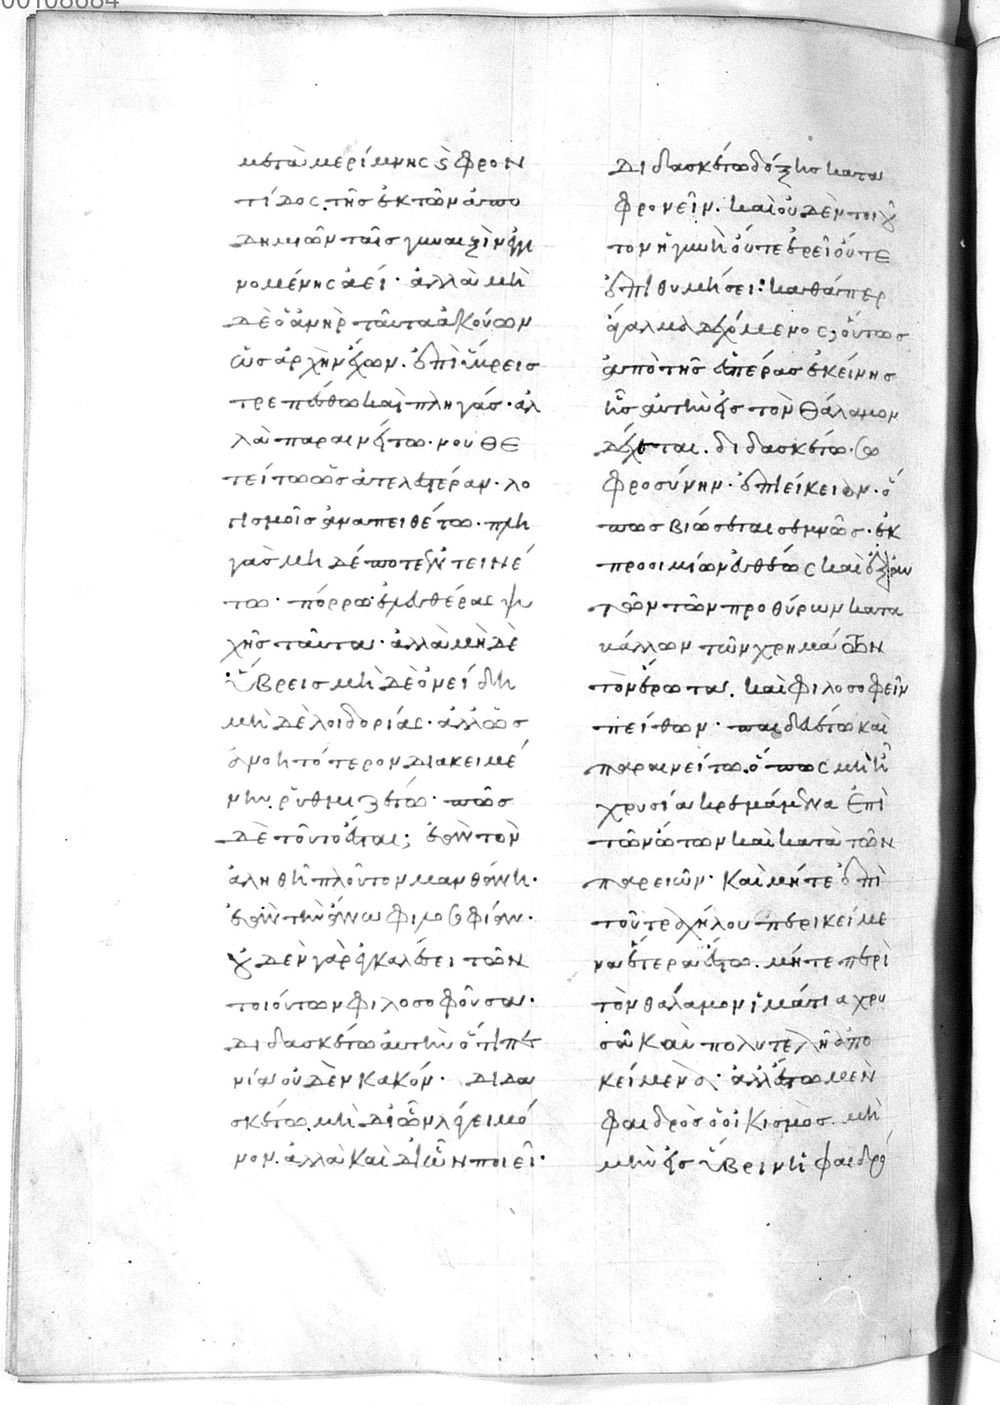 00108684
μετὰ μερίμνης ϗ φρον
τίδος τῆς ἐκ τῶν ἀπο
δημιῶν ταῖς γυναιξὶν ἐγγι
νομένης ἀεί· ἀλλὰ μὴ
δὲ ὁ ἀνὴρ ταῦτα ἀκούων
ὡς ἀρχὴν ἔχων. ἐπὶ ὕβρεις
τρεπέσθω καὶ πληγάς· ἀλ
λὰ παραινείτω· νουθε
τείτω ὡς ἀτελεστέραν· λο
γισμοῖς ἀναπειθέτω· πλη
γὰς μὴ δέποτε ἐντεινέ
τω· πόρρω ἐλευθέρας ψυ
χῆς ταῦτα· ἀλλὰ μὴ δὲ
ὕβρεις μὴ δὲ ὀνείδη
μὴ δὲ λοιδορίας· ἀλλ' ὡς
ἀνοητότερον διακειμέ
νην ῥυθμιζέτω· πῶς
δὲ τοῦτο ἔσται; ἐὰν τὸν
ἀληθῆ πλοῦτον μανθάνῃ·
ἐὰν τὴν ἄνω φιλοσοφίαν·
οὐδὲν γὰρ ἐγκαλέσει τῶν
τοιούτων φιλοσοφοῦσα·
διδασκέτω αὐτὴν ὅτι πε
νία οὐδὲν κακόν· διδα
σκέτω μὴ δι' ὧν λέγει μό
νον. ἀλλὰ καὶ δι' ὧν ποιεῖ·
διδασκέτω δόξης κατα
φρονεῖν. καὶ οὐδὲν τοιοῦ
τον ἡ γυνὴ οὔτε ἐρεῖ οὔτε
ἐπιθυμήσει: καθάπερ
ἄγαλμα δεχόμενος, οὕτως
ἀπὸ τῆς ἑσπέρας ἐκείνης
ἧς αὐτὴν εἰς τὸν θάλαμον
δέχεται. διδασκέτω· σω
φροσύνην· ἐπιείκειαν· ὅ
πως βιώσεται σεμνῶς· ἐκ
προοιμίων εὐθέως καὶ ἐξ αὐ
τῶν τῶν προθύρων κατα
βάλλων τῶν χρημάτων
τὸν ἔρωτα. καὶ φιλοσοφεῖν
πείθων· παιδευέτω καὶ
παραινείτω. ὅπως μὴ ᾖ
χρυσία κρεμάμενα ἐπὶ
τῶν ὤτων καὶ κατὰ τῶν
παρειῶν· καὶ μήτε ἐπὶ
τοῦ τραχήλου περικείμε
να ἕτερα ἔστω. μήτε περὶ
τὸν θάλαμον ἱμάτια χρυ
σᾶ καὶ πολυτελῆ ἀπο
κείμενα. ἀλλ' ἔστω μὲν
φαιδρὸς ὁ οἰκισμὸς. μὴ
μὴν εἰς ὕβριν ἡ φαιδρό